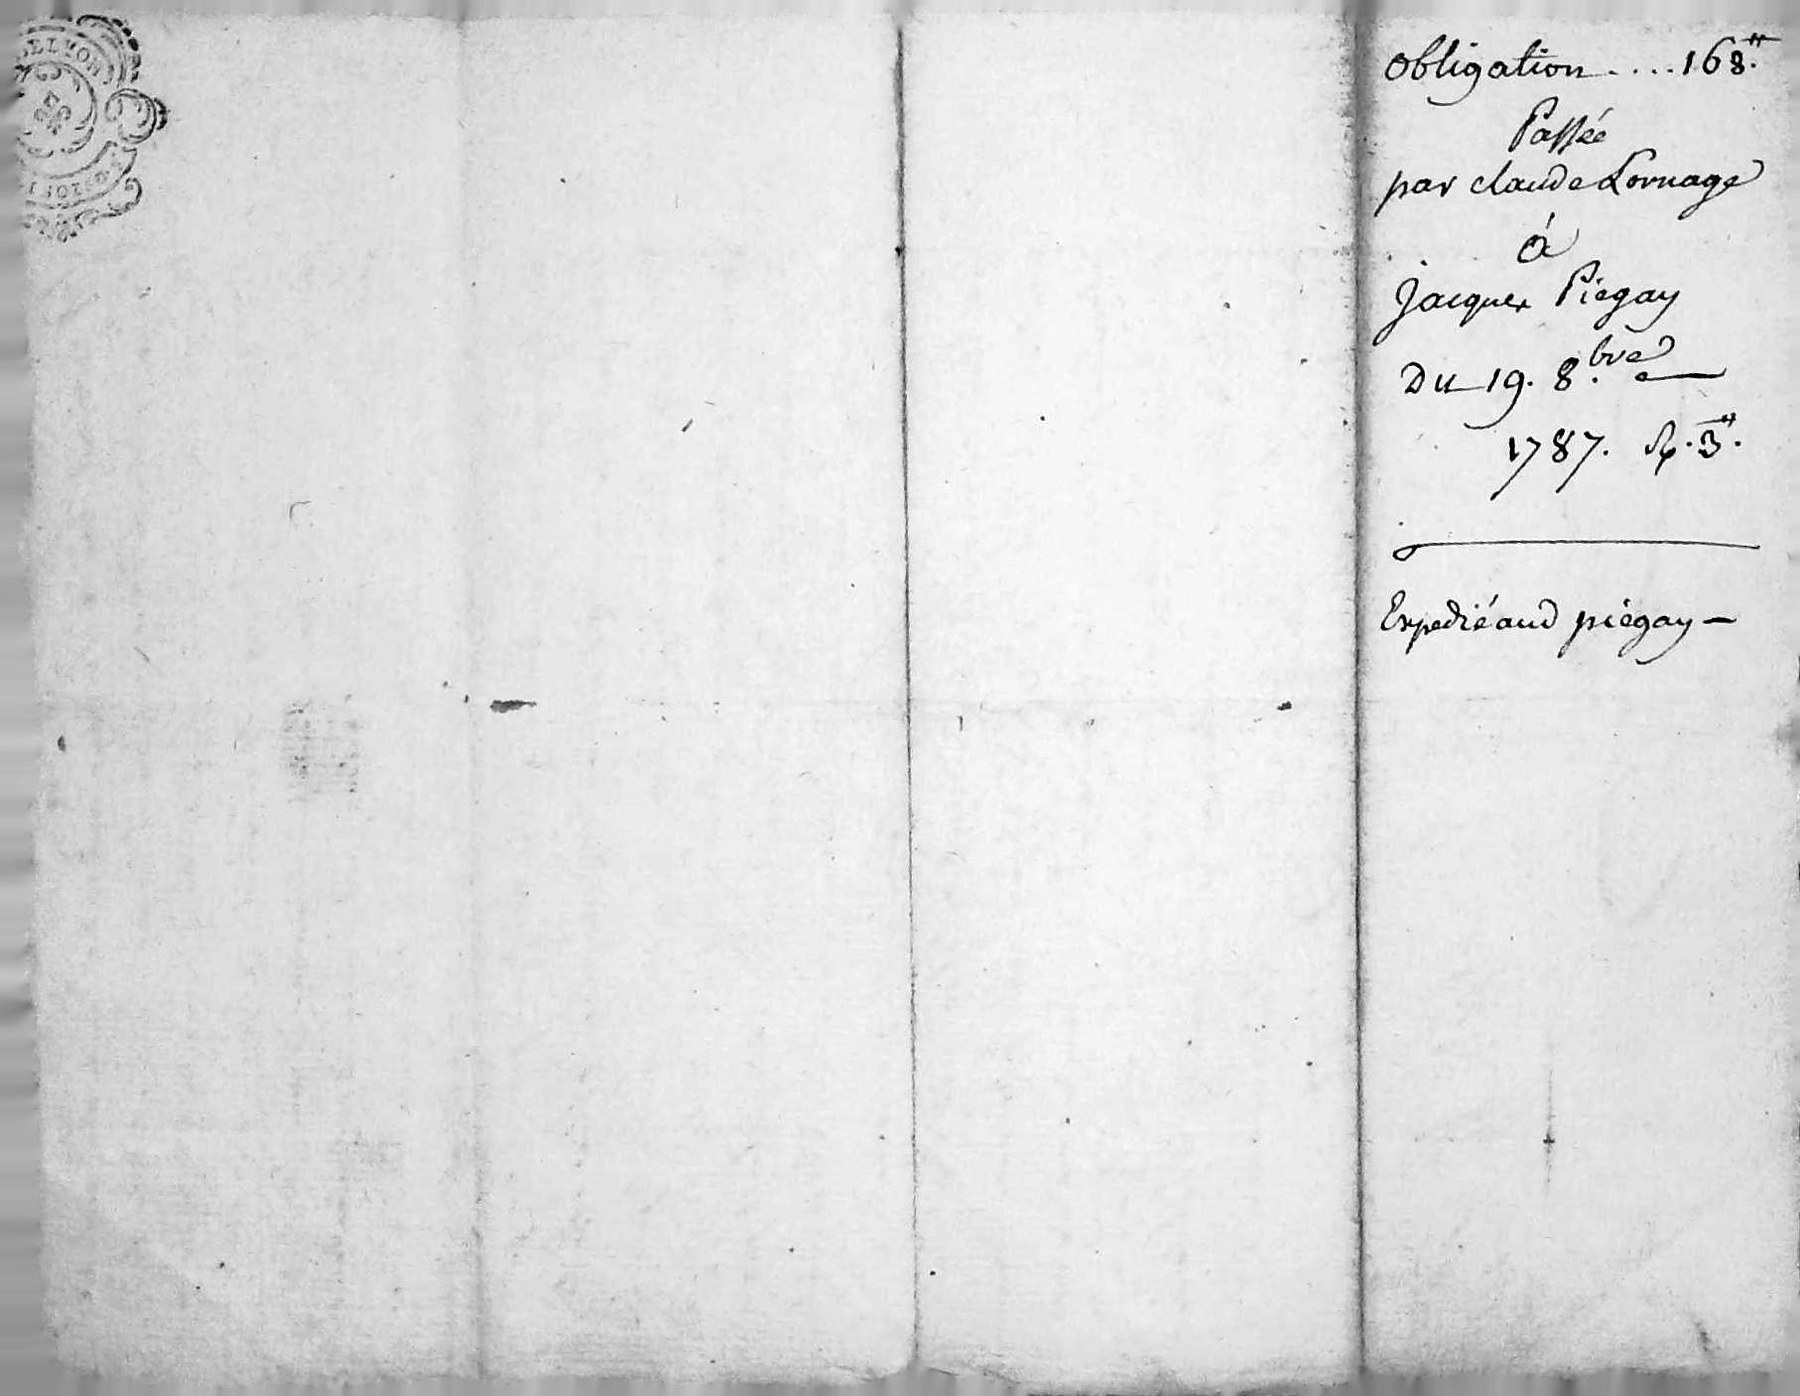 obligation .... 168.ᵗᵗ
Passée
par claude Lornage
à
Jacques Piegay
Du 19. 8.bre
1787. 3.ᵗᵗ
Expedié aud piégay —